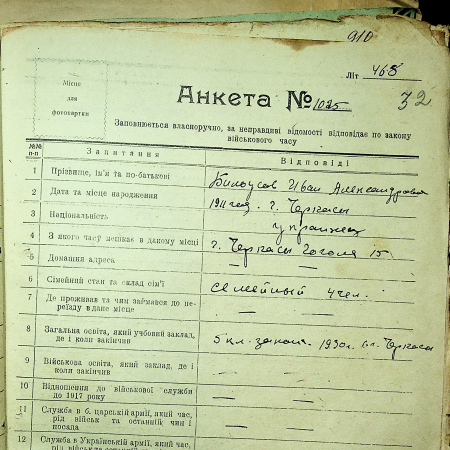 910
Літ 465
32
Місце
для
фотокартки
Анкета № 1025
Заповнюється власноручно, за неправдиві відомості відповідає по закону
військового часу
№№ п-п Запитання Відповіді
1 Прізвище, ім'я та по-батькові Билоусов Иван Александрович
2 Дата та місце народження 1911 год. г. Черкасы
3 Національність украинец
4 З якого часу мешкає в даному місці г. Черкасы Гоголя 15
5 Домашня адреса — —
6 Сімейний стан та склад сім'ї семейный 4 чел.
7 Де проживав та чим займався до пе-
реїзду в дане місце — —
8 Загальна освіта, який учбовий заклад,
де і коли закінчив 5 кл. закон. 1930 г. г. Черкасы
9 Військова освіта, який заклад, де і
коли закінчив — —
10 Відношення до військової служби
до 1917 року — —
11 Служба в б. царській армії, який час,
рід військ та останній чин і
посада — —
12 Служба в Українській армії, який час,
рід військ та останній чин